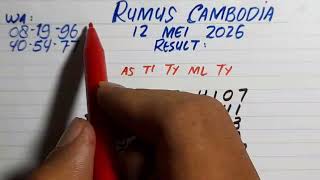 WA:
08-19-96
40-54-77
RUMUS CAMBODIA
12 MEI 2026
RESULT:
AS TI TY ML TY
4107